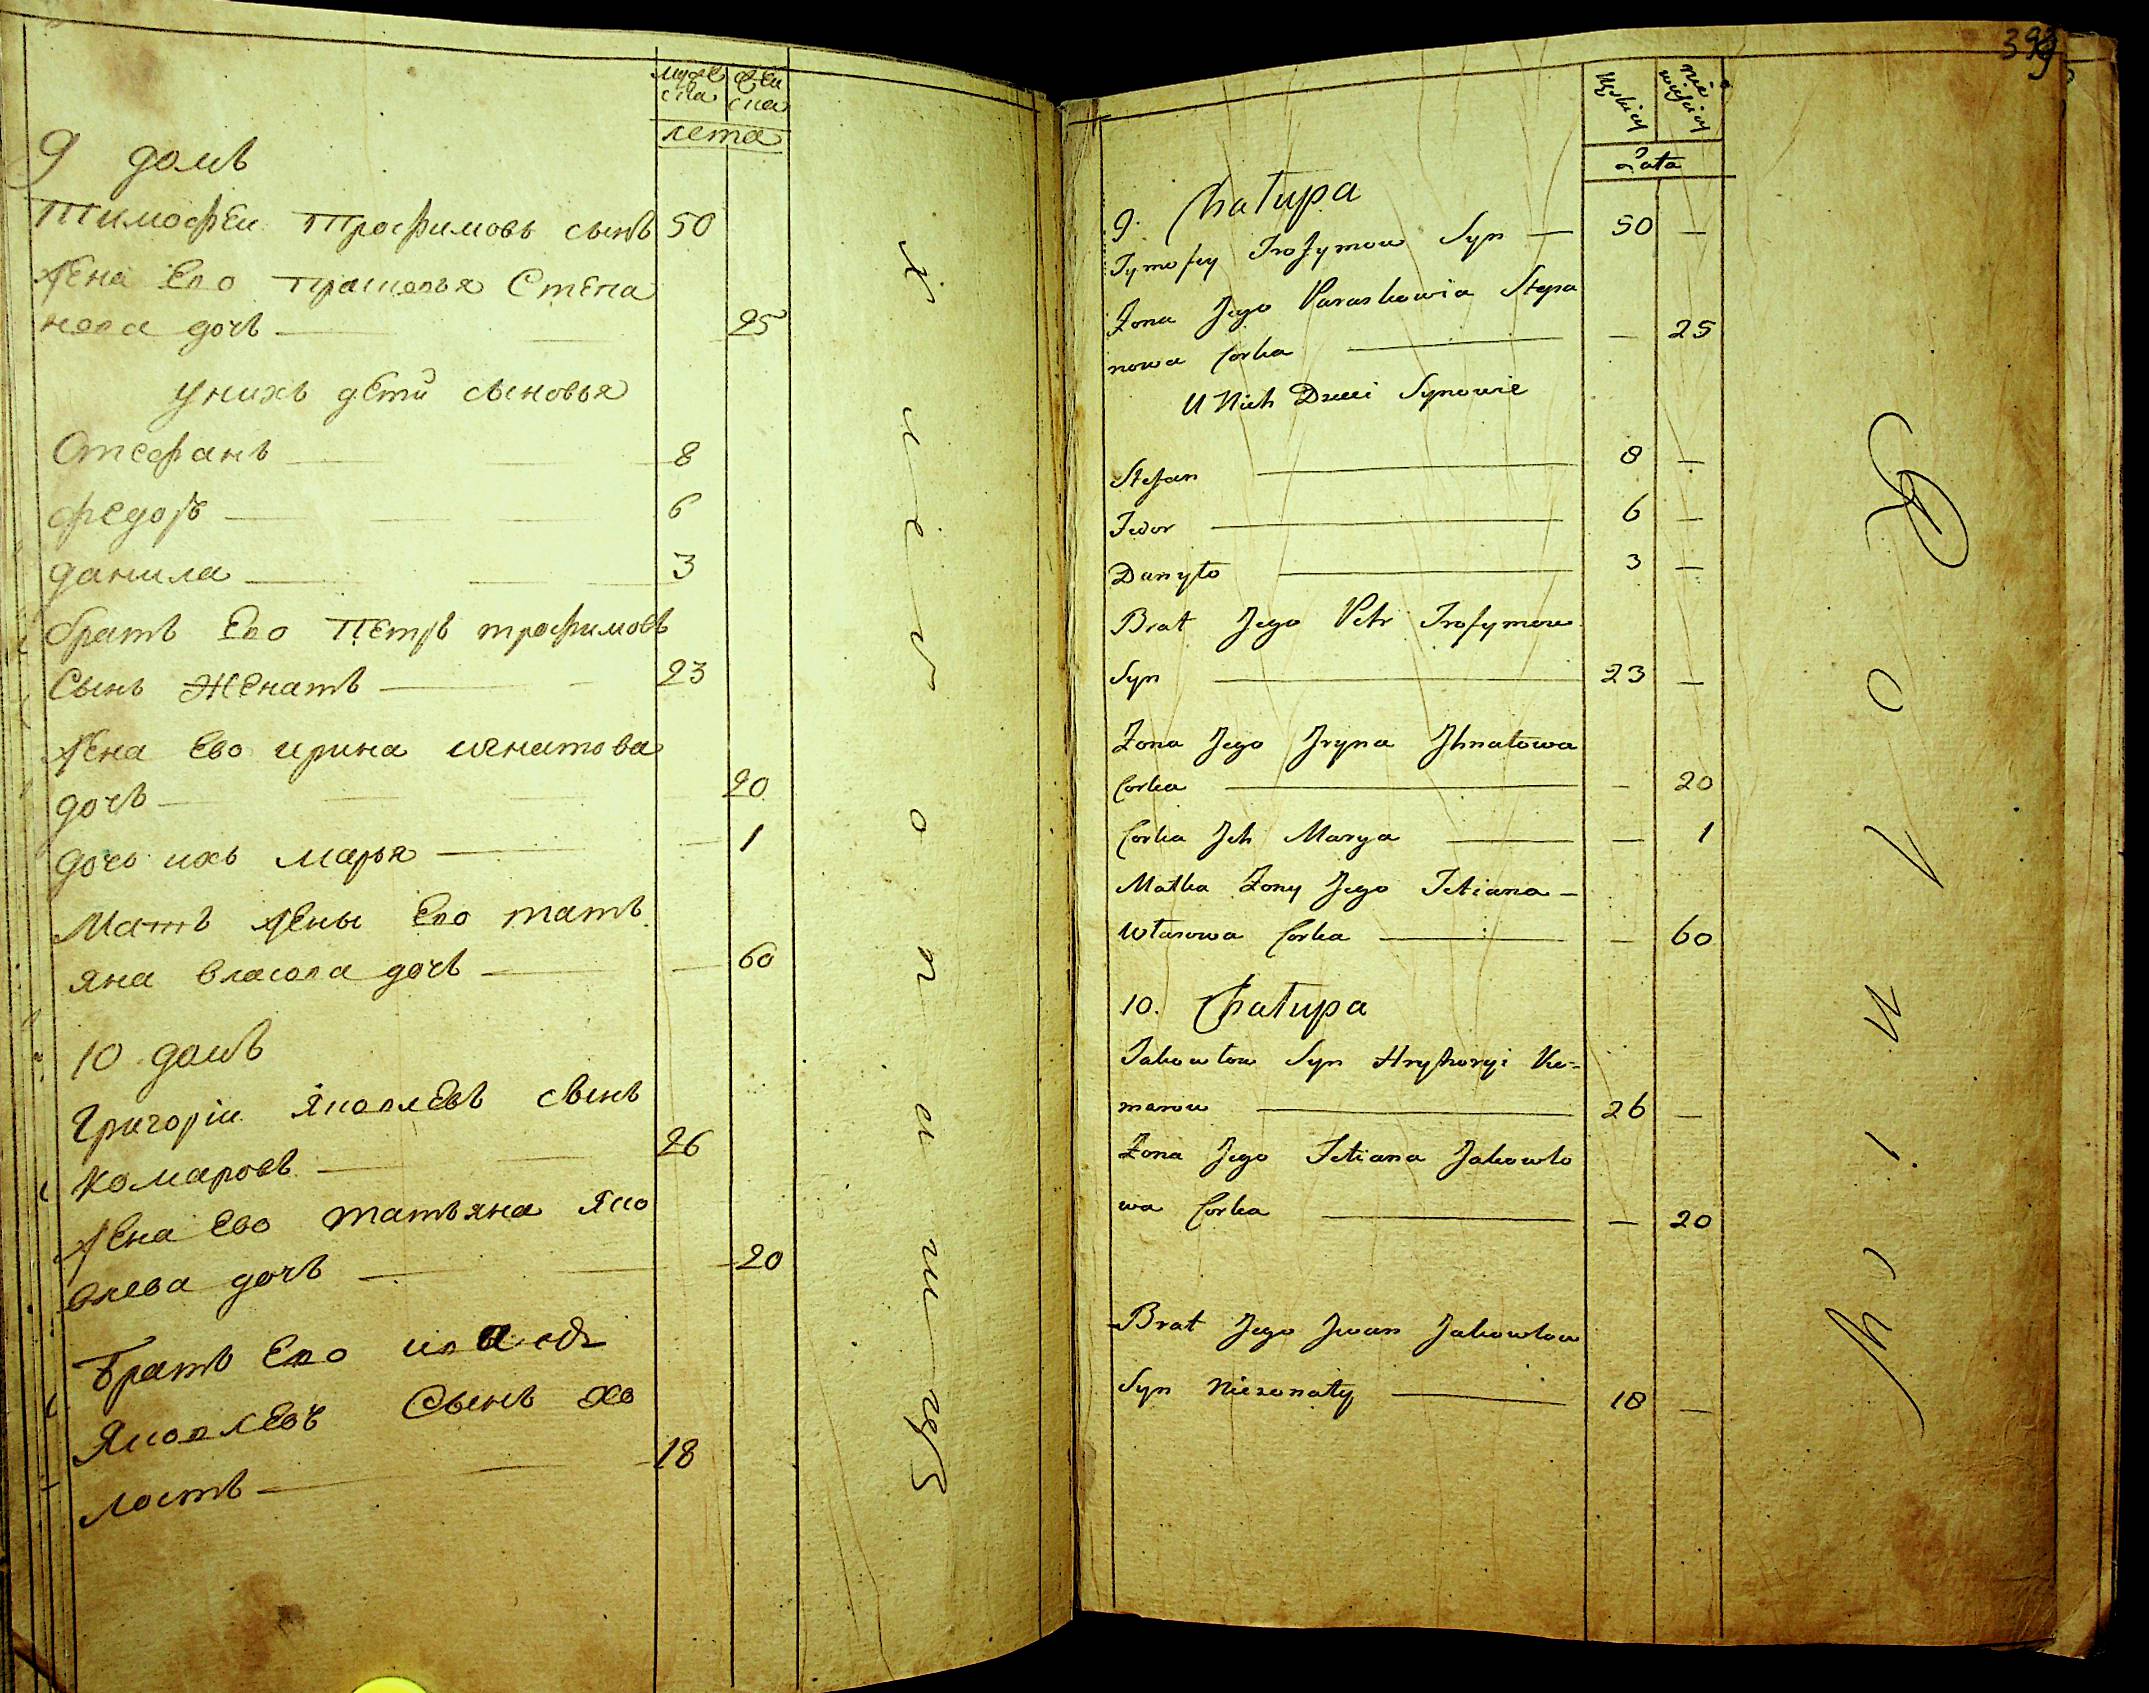 муже ска
жен ска
лета
9 домъ
Тимофеи Трофимовъ сынъ 50
Жена Ево Прасковья Степа
нова дочь 25
Унихъ дети сыновья
Стефанъ 8
Федоръ 6
Данила 3
братъ Ево Петръ трофимовъ
Сынъ Женатъ 23
Жена Ево ирина игнатова
дочь 20
дочь ихъ марья 1
Мать Жены Ево тать
яна власова дочь 60
10 домъ
Григорiи Яковлевъ сынъ
Комаровъ 26
Жена Ево татьяна Яко
влева дочь 20
Братъ Ево иванъ
Яковлевъ Сынъ хо
лостъ 18
399
Lata
9. Chałupa
Tymofey Trofymow Syn — 50 —
Żona Jego Paraskowia Stepa
nowa Corka — 25
U Nich Dzieci Synowie
Stefan 8 —
Fedor 6 —
Danyło 3 —
Brat Jego Petr Trofymow
Syn 23 —
Żona Jego Jryna Jhnatowa
Corka — 20
Corka Jch Marya — 1
Matka Żony Jego Tetiana —
Własowa Corka — 60
10. Chałupa
Jakowlow Syn Hryhoryi Ko-
marow 26 —
Żona Jego Tetiana Jakowlo
wa Corka — 20
Brat Jego Jwan Jakowlow
Syn Nieżonaty 18 —